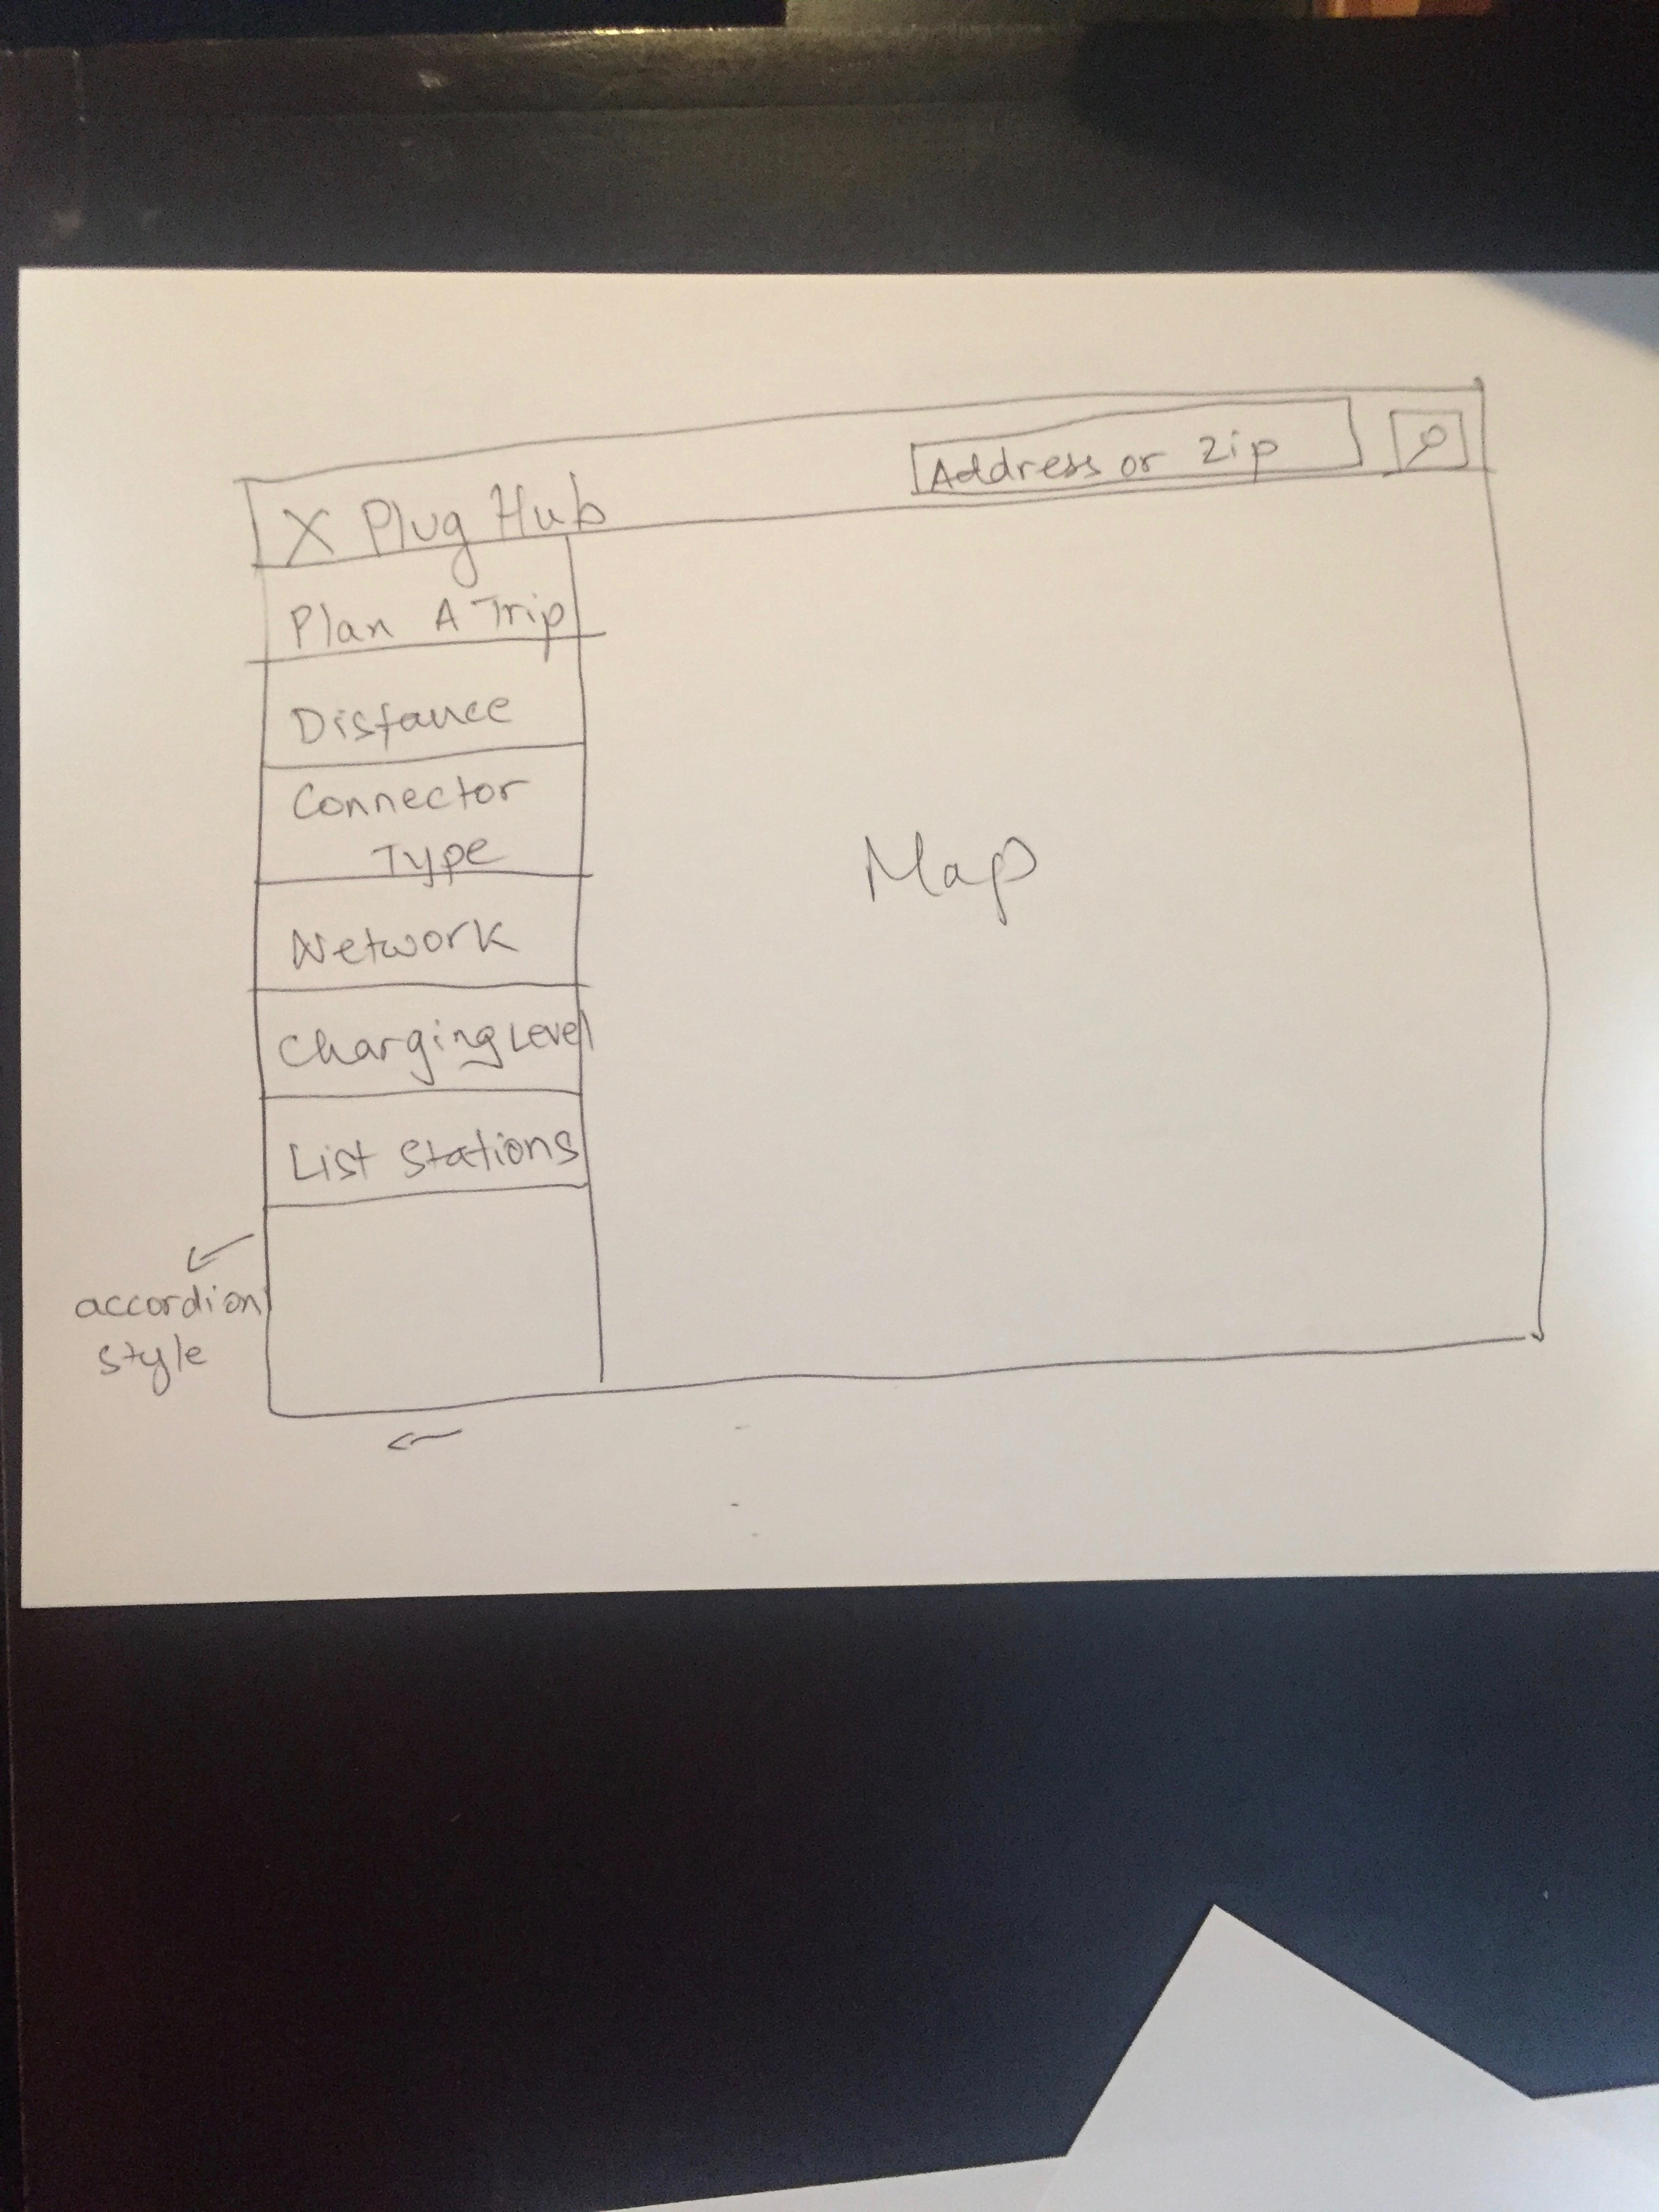 X Plug Hub
Address or Zip
Plan A Trip
Distance
Connector
Type
Network
Charging Level
List Stations
Map
accordion
style